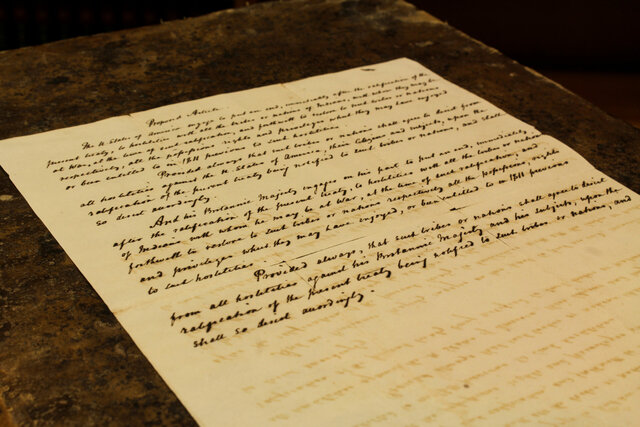 Proposed Article.
The U States of America engage to put an end, immediately after the ratification of the
present treaty, to hostilities with all the tribes or nations of Indians, with whom they may be
at War at the time of such ratification, and forthwith to restore to such tribes or nations
respectively, all the possessions rights and privileges which they may have enjoyed
or been entitled to in 1811 previous to such hostilities.
Provided always that such tribes or nations shall agree to desist from
all hostilities against the U States of America, their Citizens and subjects, upon the
ratification of the present treaty being notified to such tribes or nations, and shall
so desist accordingly.
And his Britannic Majesty engages on his part to put an end, immediately
after the ratification of the present treaty, to hostilities with all the tribes or nations
of Indians with whom he may be at war, at the time of such ratification, and
forthwith to restore to such tribes or nations respectively all the possessions, rights
and privileges which they may have enjoyed, or been entitled to in 1811 previous
to such hostilities.
Provided always, that such tribes or nations shall agree to desist
from all hostilities against his Britannic Majesty and his subjects, upon the
ratification of the present treaty being notified to such tribes or nations, and
shall so desist accordingly.